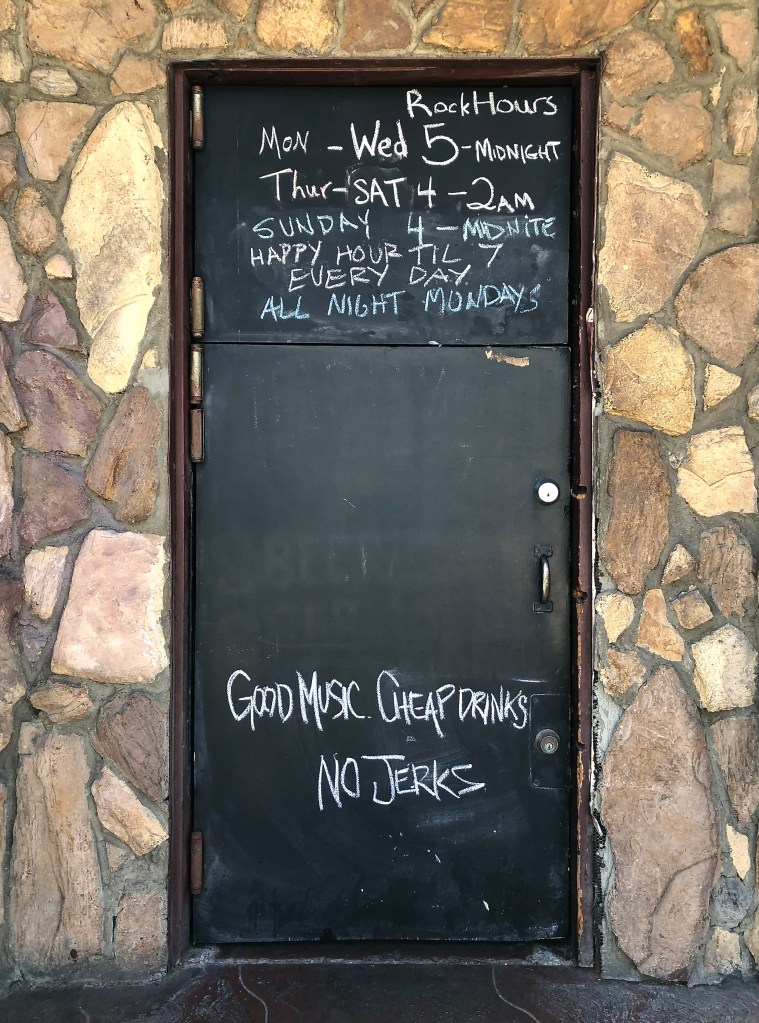 RockHours
Mon - Wed 5 - MIDNIGHT
Thur - SAT 4 - 2AM
SUNDAY 4 - MIDNITE
HAPPY HOUR TIL 7
EVERY DAY
ALL NIGHT MONDAYS
GOOD MUSIC. CHEAP DRINKS
NO JERKS